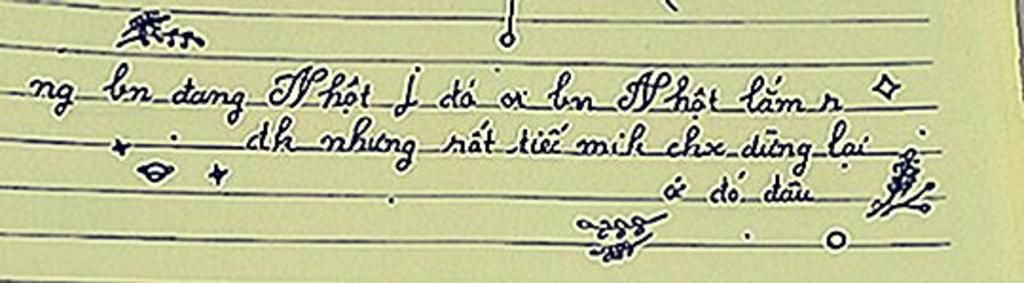 ng bn đang Nhột j đó ơi bn Nhột lắm r
đk nhưng rất tiếc mik chx dừng lại
ở đó đâu